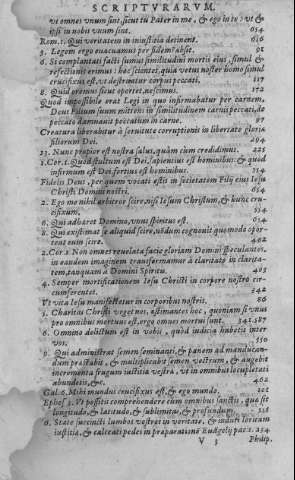 SCRIPTVRARVM.
vt omnes vnum sint, sicut tu Pater in me, & ego in te, vt &
ipsi in nobis vnum sint. 054
Rom. 1. Qui veritatem in iniustitia detinent. 676
3. Legem ergo euacuamus per fidem? absit. 95
6. Si complantati facti sumus similitudini mortis eius, simul &
resurrectionis erimus: hoc scientes, quia vetus noster homo simul
crucifixus est, vt destruatur corpus peccati. 117
8. Quid oremus sicut oportet, nescimus. 172
Quod impossibile erat Legi in quo infirmabatur per carnem,
Deus Filium suum mittens in similitudinem carnis peccati, de
peccato damnauit peccatum in carne. 97
Creatura liberabitur à seruitute corruptionis in libertatē gloriæ
filiorum Dei. 294
13. Nunc propior est nostra salus, quàm cùm credidimus. 225
1. Cor. 1. Quod stultum est Dei, sapientius est hominibus: & quod
infirmum est Dei fortius est hominibus. 314
Fidelis Deus, per quem vocati estis in societatem Filij eius Iesu
Christi Domini nostri. 654
2. Ego me nihil arbitror scire, nisi Iesum Christum, & hunc cru-
cifixum. 314
6. Qui adhæret Domino, vnus spiritus est. 654
8. Qui existimat se aliquid scire, nõdum cognouit quomodo opor-
teat eum scire. 462
2. Cor. 3. Nos omnes reuelata facie gloriam Domini speculantes,
in eandem imaginem transformamur à claritate in clarita-
tem, tanquam à Domini Spiritu. 403
4. Semper mortificationem Iesu Christi in corpore nostro cir-
cumferentes. 232
Vt vita Iesu manifestetur in corporibus nostris. 80
5. Charitas Christi vrget nos, æstimantes hoc, quoniam si vnus
pro omnibus mortuus est, ergo omnes mortui sunt. 342.587
6. delicto est in vobis, quòd iudicia habetis inter
vos. 550
9. Qui administrat semen seminanti, & panem ad manducan-
dum præstabit, & multiplicabit semen vestrum, & augebit
incrementa frugum iustitiæ vestræ, vt in omnibus locupletati
abundetis, &c. 462
Gal. 6. Mihi mundus crucifixus est, & ego mundo. 102
Ephes. 3. Vt possitis comprehendere cum omnibus sanctis, quæ sit
longitudo, & latitudo, & sublimitas, & profundum. 328
6. State succincti lumbos vestros in veritate, & induti loricam
iustitiæ, & calceati pedes in præparatione Euãgelij pacis. 254
V 3 Philip.